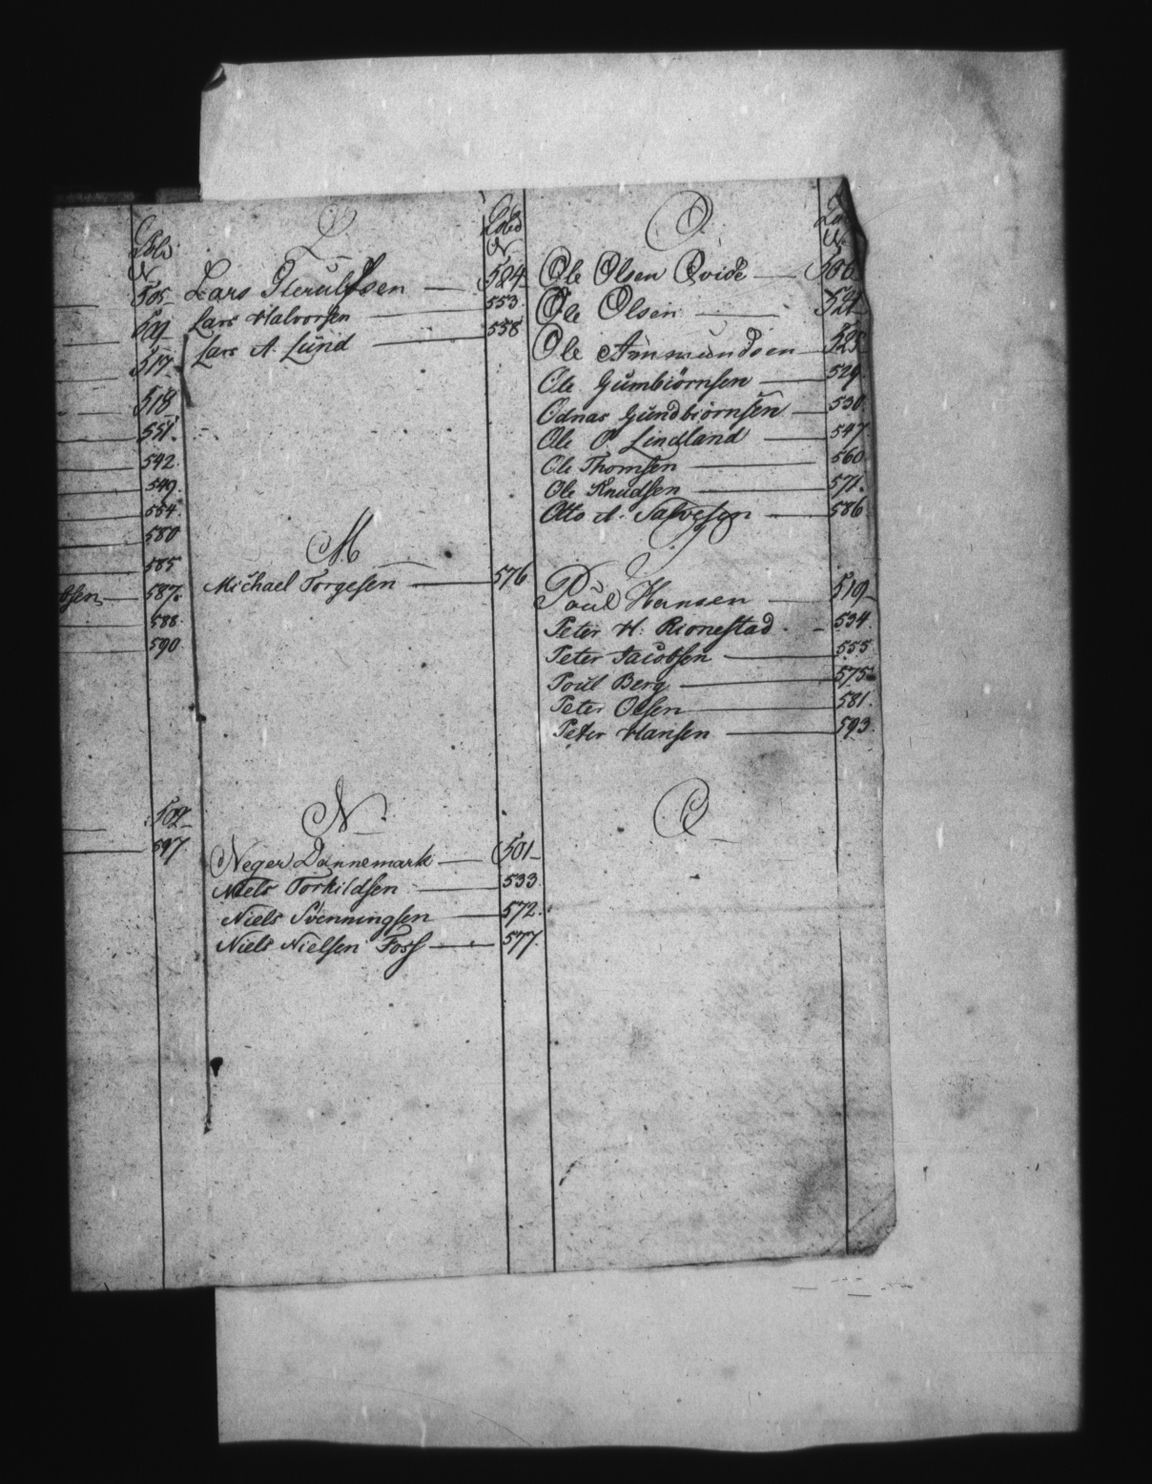 Løbs
N.
505
511
517
518
551.
542
549
554
580
585
587.
588
590
502
597
L
Løbs
N.
Lars Halvorsen 553
Lars A. Lund 558
M
Michael Torgesen 576
N.
Neger Dannemark 501
Niels Torkildsen 533
Niels Svenningsen 572.
Niels Nielsen Foss 577.
O.
N.
Ole Olsen Qvide 506
Ole Olsen 521
Ole Ammundsen 525
Ole Gumbiörnsen 529
Odnas Gundbiörnsen 530
Ole O. Lindland 547
Ole Thomsen 560
Ole Knudsen 571.
Otto A. Salvesen 586
P
Poul Hansen 519
Peter H. Rionestad 534
Peter Jacobsen 555
Poul Berg 575
Peter Olsen 581.
Peter Hansen 593
Q